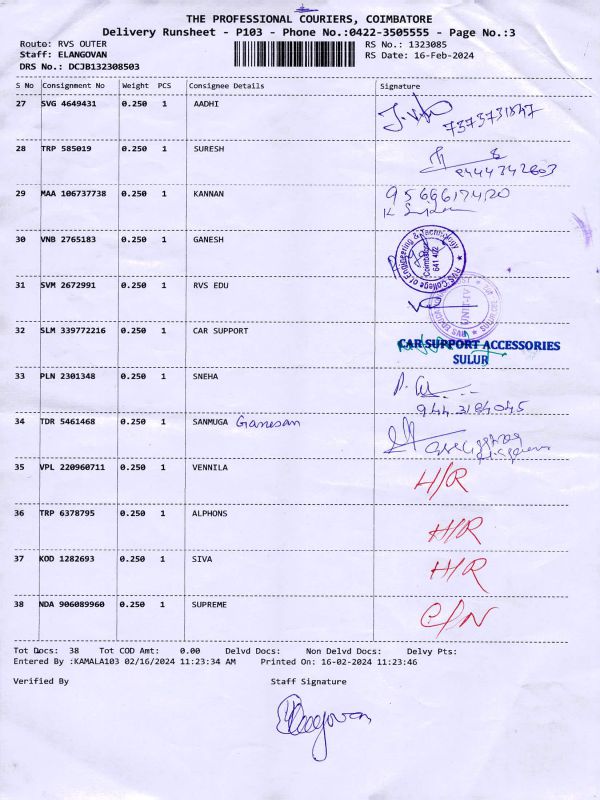 THE PROFESSIONAL COURIERS, COIMBATORE
Delivery Runsheet - P103 - Phone No.:0422-3505555 - Page No.:3
Route: RVS OUTER RS No.: 1323085
Staff: ELANGOVAN RS Date: 16-Feb-2024
DRS No.: DCJB132308503
S No Consignment No Weight PCS Consignee Details Signature
27 SVG 4649431 0.250 1 AADHI
7373731847
28 TRP 585019 0.250 1 SURESH
29 MAA 106737738 0.250 1 KANNAN 9566617420
30 VNB 2765183 0.250 1 GANESH
RVS College of Engineering & Technology
Coimbatore
641 402
31 SVM 2672991 0.250 1 RVS EDU
32 SLM 339772216 0.250 1 CAR SUPPORT CAR SUPPORT ACCESSORIES
SULUR
33 PLN 2301348 0.250 1 SNEHA
9443184045
34 TDR 5461468 0.250 1 SANMUGA Ganesan
35 VPL 220960711 0.250 1 VENNILA H/R
36 TRP 6378795 0.250 1 ALPHONS H/R
37 KOD 1282693 0.250 1 SIVA H/R
38 NDA 906089960 0.250 1 SUPREME C/N
Tot Docs: 38 Tot COD Amt: 0.00 Delvd Docs: Non Delvd Docs: Delvy Pts:
Entered By :KAMALA103 02/16/2024 11:23:34 AM Printed On: 16-02-2024 11:23:46
Verified By Staff Signature
Elangovan